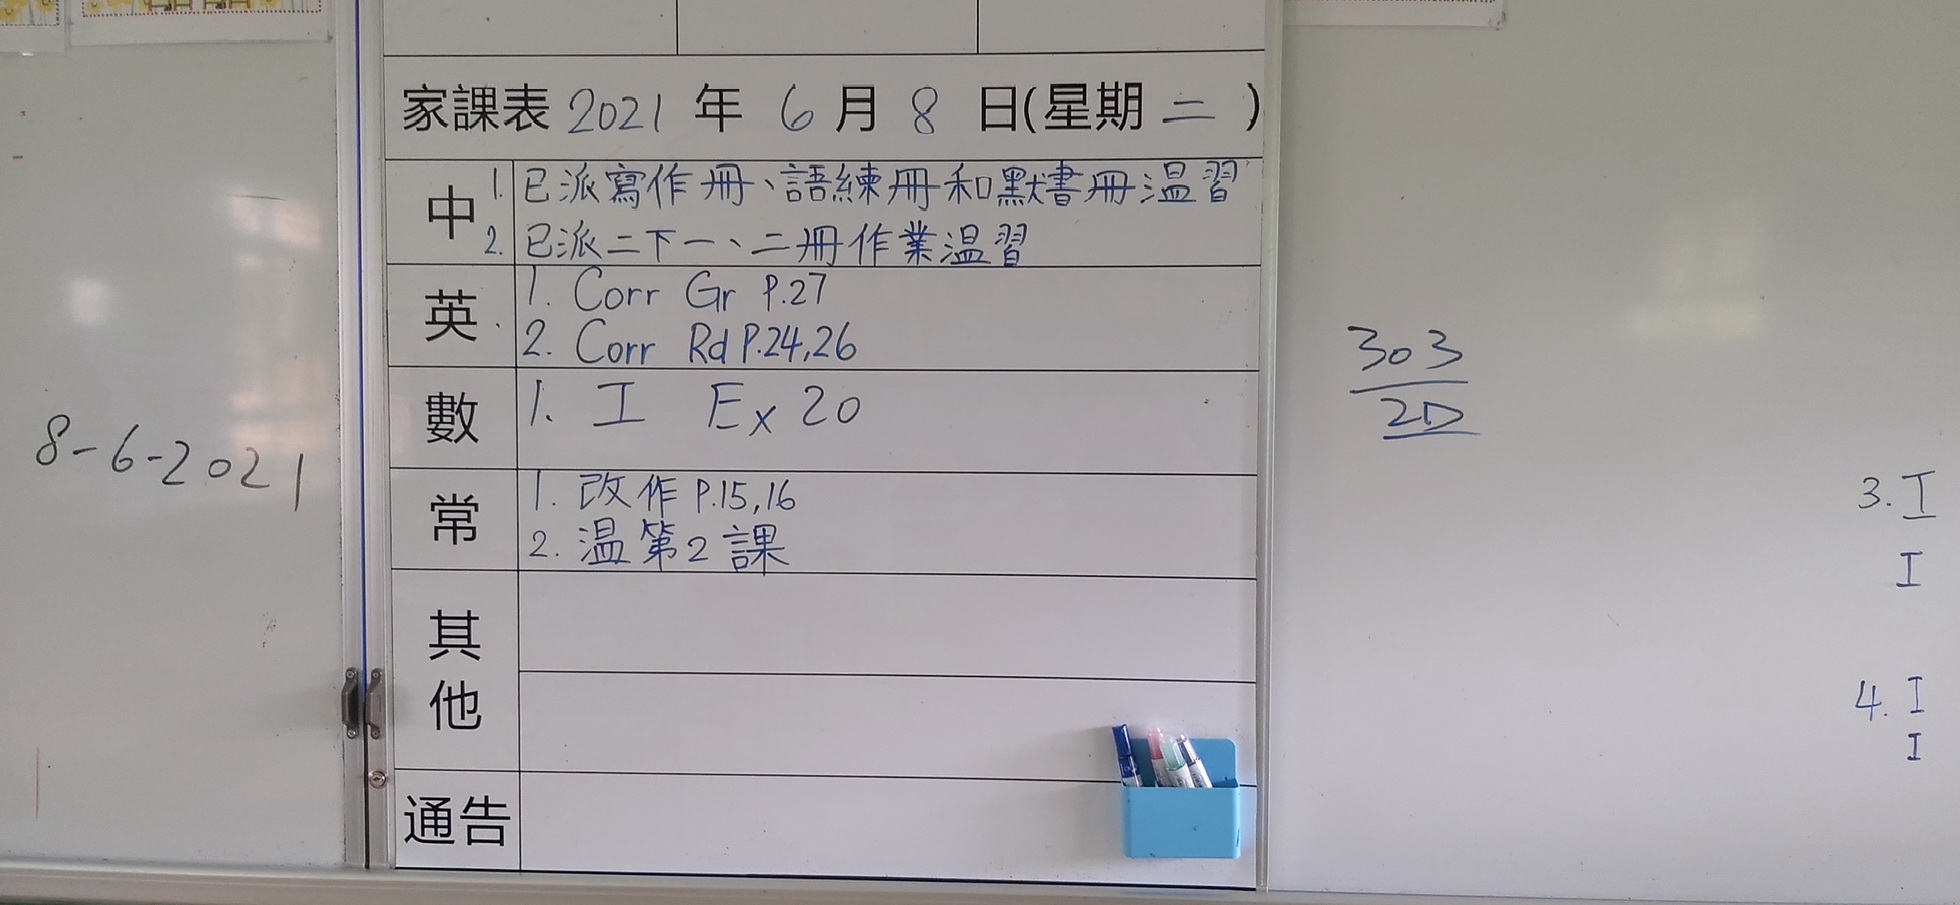 家課表 2021 年 6 月 8 日(星期 二 )
中
1. 已派寫作冊、語練冊和默書冊溫習
2. 已派二下一、二冊作業溫習
英
1. Corr Gr P.27
2. Corr Rd P.24,26
數
1. I Ex 20
常
1. 改作 P.15,16
2. 温第2課
其他
通告
8-6-2021
303
2D
3. I
I
4. I
I